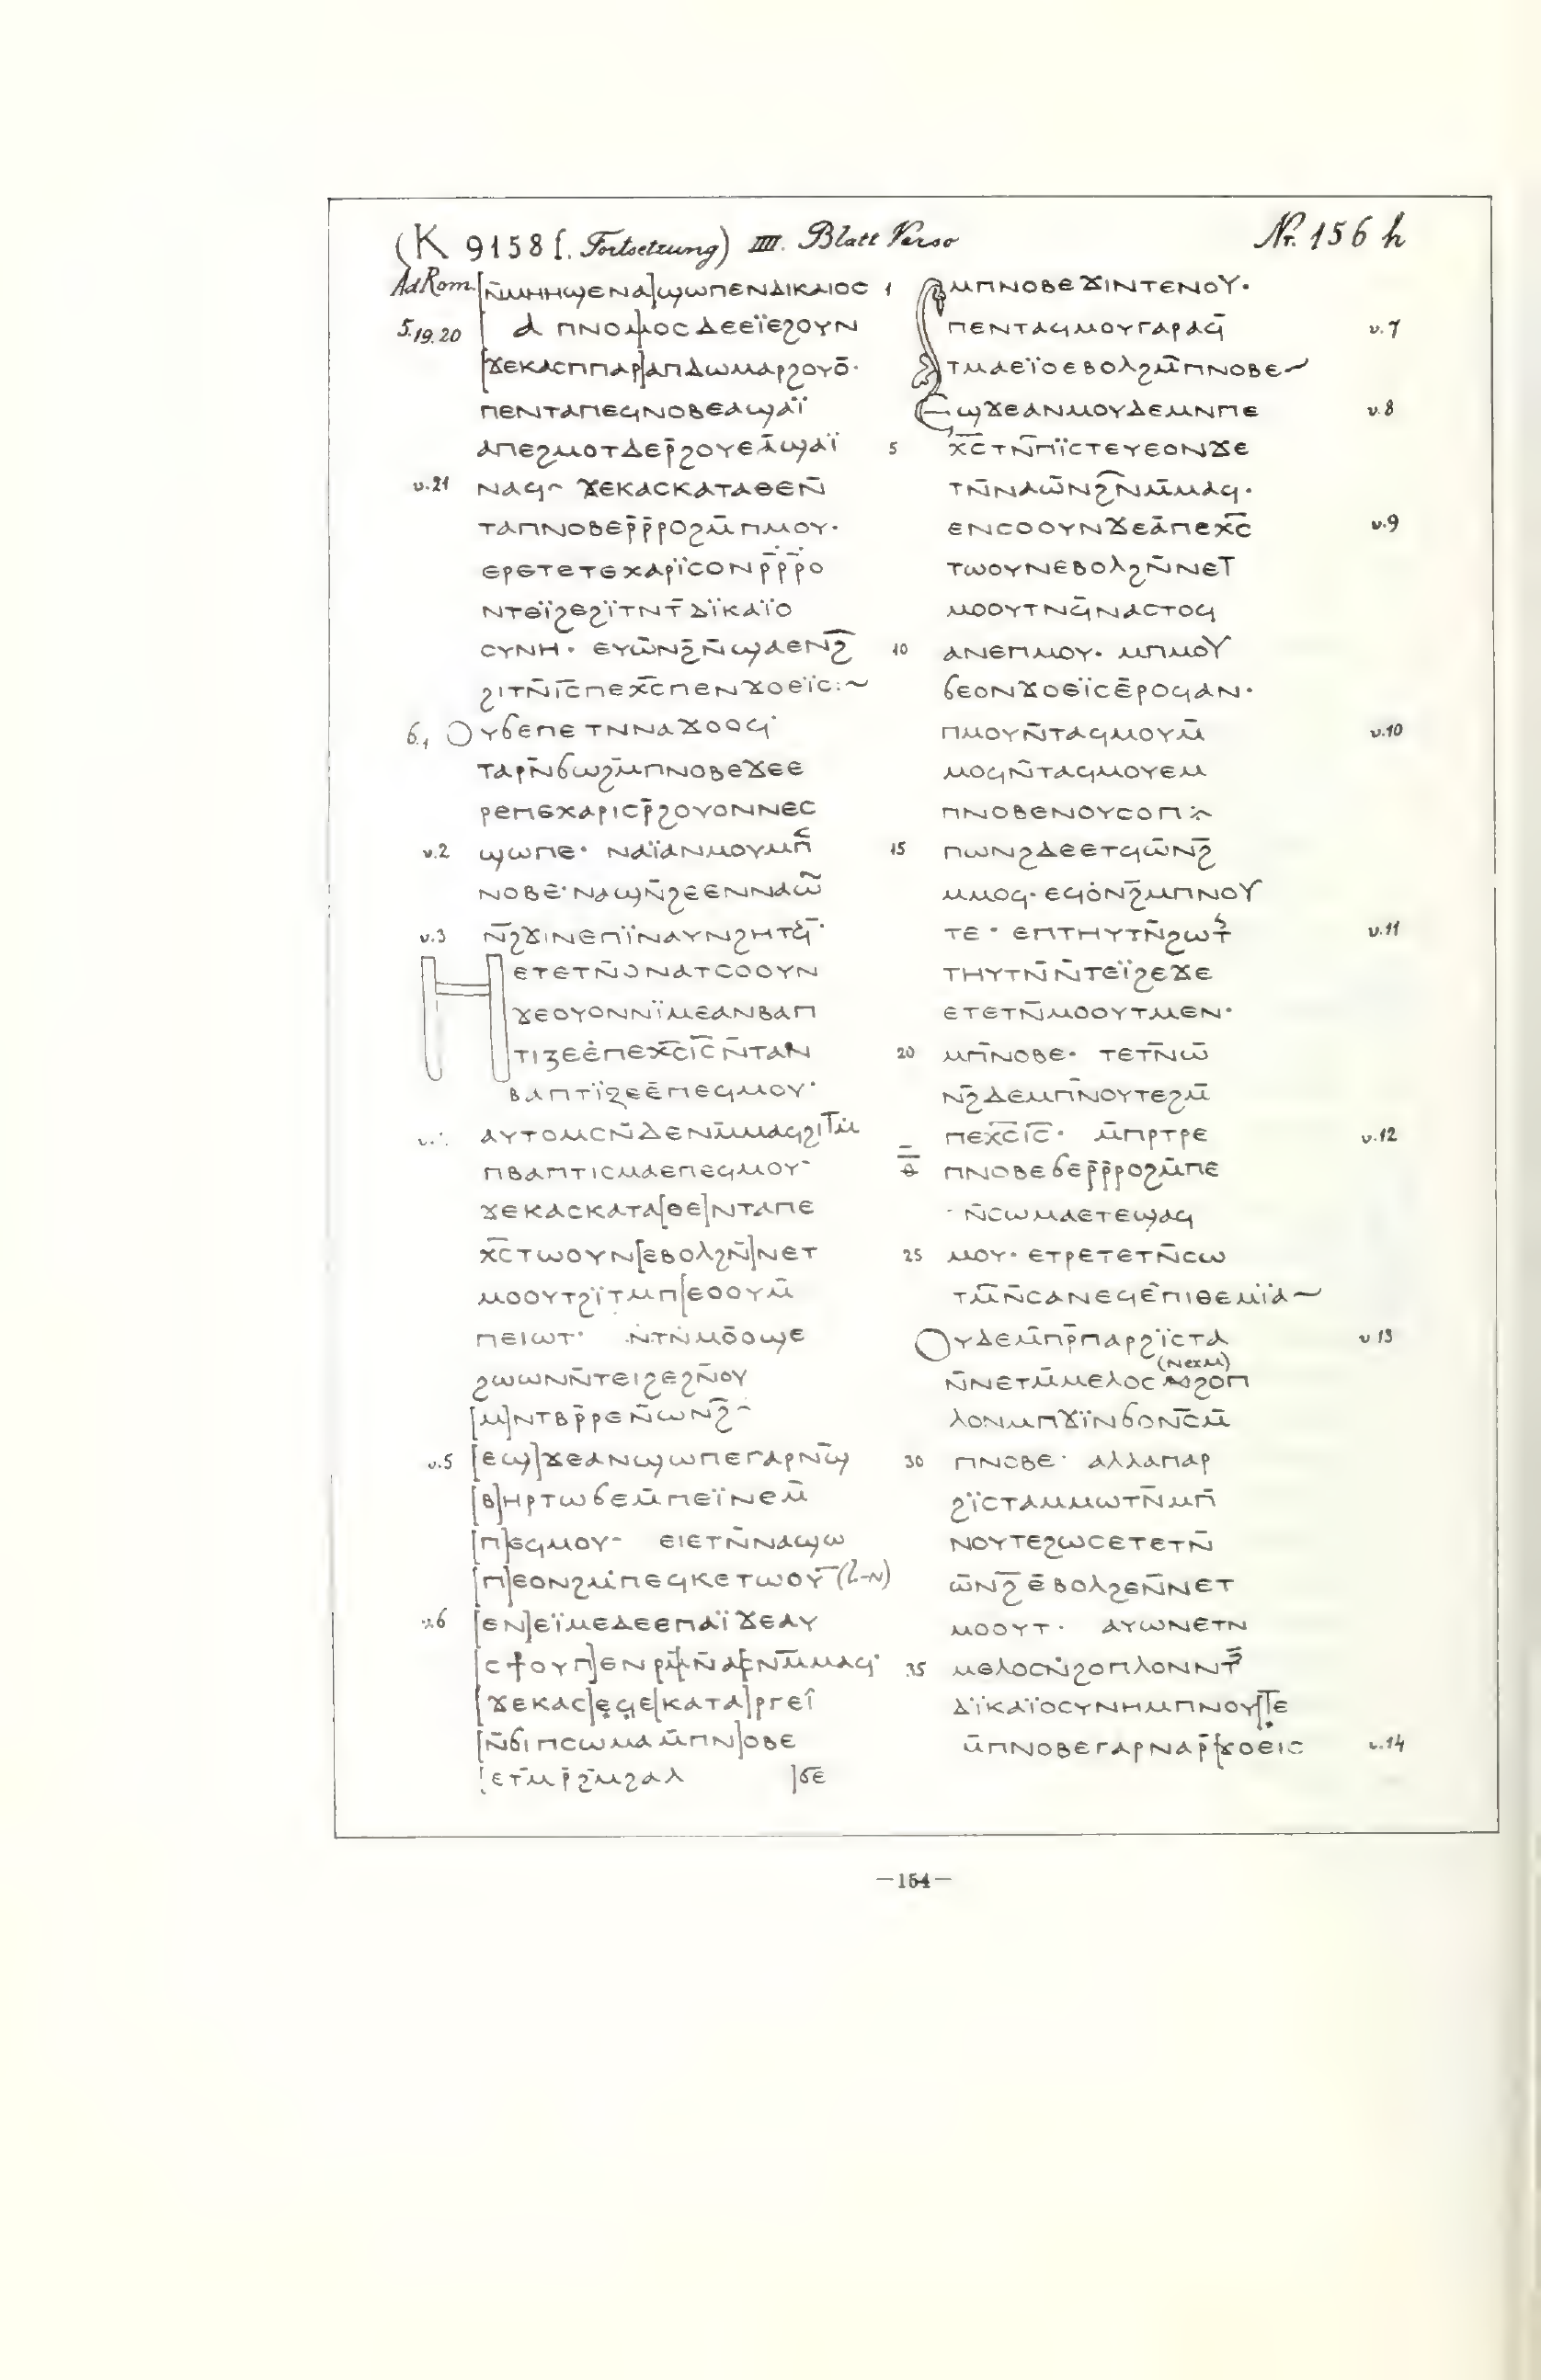 (K 9158 f. Fortsetzung) IIII. Blatt Verso
Nr. 156 h
Ad Rom. [ⲛ̄ⲙⲏⲏϣⲉⲛⲁ]ϣⲱⲡⲉⲛⲇⲓⲕⲁⲓⲟⲥ
5.19.20 ⲁ ⲡⲛⲟⲙⲟⲥⲇⲉⲉⲓ̈ⲉϩⲟⲩⲛ
[ϫⲉⲕⲁⲥⲡⲡⲁⲣ]ⲁⲡⲇⲱⲙⲁⲣϩⲟⲩⲟ̄·
ⲡⲉⲛⲧⲁⲡⲉϥⲛⲟⲃⲉⲁϣⲁⲓ̈
ⲁⲡⲉϩⲙⲟⲧⲇⲉⲣ̄ϩⲟⲩⲉⲁ̄ϣⲁⲓ̈
v.21 ⲛⲁϥ~ ϫⲉⲕⲁⲥⲕⲁⲧⲁⲑⲉⲛ̄
ⲧⲁⲡⲛⲟⲃⲉⲣ̄ⲣ̄ⲣⲟϩⲙ̄ⲡⲙⲟⲩ·
ⲉⲣⲉⲧⲉⲧⲉⲭⲁⲣⲓ̈ⲥⲟⲛⲣ̄ⲣ̄ⲣⲟ
ⲛⲧⲉⲓ̈ϩⲉϩⲓ̈ⲧⲛⲧ̄ⲇⲓ̈ⲕⲁⲓ̈ⲟ
ⲥⲩⲛⲏ· ⲉⲩⲱ̄ⲛϩ̄ⲛ̄ϣⲁⲉⲛϩ̄
ϩⲓⲧⲛ̄ⲓ̄ⲥ̄ⲡⲉⲭ̄ⲥ̄ⲡⲉⲛϫⲟⲉⲓ̈ⲥ:~
6,1 Ⲟⲩϭⲉⲡⲉⲧⲛⲛⲁϫⲟⲟϥ·
ⲧⲁⲣⲛ̄ϭⲱϩⲙ̄ⲡⲛⲟⲃⲉϫⲉⲉ
ⲣⲉⲡⲉⲭⲁⲣⲓⲥⲣ̄ϩⲟⲩⲟⲛⲛⲉⲥ
v.2 ϣⲱⲡⲉ· ⲛⲁⲓ̈ⲁⲛⲙⲟⲩⲙⲡ̄
ⲛⲟⲃⲉ̄·ⲛⲁϣⲛ̄ϩⲉⲉⲛⲛⲁⲱ̄
v.3 ⲛ̄ϩϫⲓⲛⲉⲡⲓ̈ⲛⲁⲩⲛϩⲏⲧϥ̄·
Ⲏ ⲉⲧⲉⲧⲛ̄ⲟⲛⲁⲧⲥⲟⲟⲩⲛ
ϫⲉⲟⲩⲟⲛⲛⲓ̈ⲙⲉⲁⲛⲃⲁⲡ
ⲧⲓⲍⲉⲉ̇ⲡⲉⲭ̄ⲥ̄ⲓ̄ⲥ̄ⲛ̄ⲧⲁⲛ
ⲃⲁⲡⲧⲓ̈ⲍⲉⲉ̄ⲡⲉϥⲙⲟⲩ·
ⲁⲩⲧⲟⲙⲥⲛ̄ⲇⲉⲛⲙ̄ⲙⲁϥϩⲓⲧⲙ̄
ⲡⲃⲁⲡⲧⲓⲥⲙⲁⲉⲡⲉϥⲙⲟⲩ·
ϫⲉⲕⲁⲥⲕⲁⲧⲁ[ⲑⲉ]ⲛⲧⲁⲡⲉ
ⲭ̄ⲥ̄ⲧⲱⲟⲩⲛ[ⲉⲃⲟⲗϩⲛ̄]ⲛⲉⲧ
ⲙⲟⲟⲩⲧϩⲓ̈ⲧⲙⲡ[ⲉⲟⲟⲩⲙ̄
ⲡⲉⲓⲱⲧ· ⲛ̇ⲧⲛ̇ⲙⲟ̄ⲟϣⲉ
ϩⲱⲱⲛⲛ̄ⲧⲉⲓϩⲉϩⲛ̄ⲟⲩ
[ⲙ]ⲛⲧⲃⲣ̄ⲣⲉⲛ̄ⲱⲛϩ̄~
v.5 [ⲉϣ]ϫⲉⲁⲛϣⲱⲡⲉⲅⲁⲣⲛ̄ϣ
[ⲃ]ⲏⲣⲧⲱϭⲉⲙ̄ⲡⲉⲓ̈ⲛⲉⲙ̄
[ⲡ]ⲉϥⲙⲟⲩ· ⲉⲓⲉⲧⲛ̄ⲛⲁϣⲱ
[ⲡ]ⲉⲟⲛϩⲙ̇ⲡⲉϥⲕⲉⲧⲱⲟⲩ̄ (l-ⲛ)
v.6 [ⲉⲛ]ⲉⲓ̈ⲙⲉⲇⲉⲉⲡⲁⲓ̈ϫⲉⲁⲩ
ϫⲉⲕⲁⲥ]ⲉϥⲉ[ⲕⲁⲧⲁ]ⲣⲅⲉⲓ̂
[ⲛ̄ϭⲓⲡⲥⲱⲙⲁⲙ̄ⲡⲛ]ⲟⲃⲉ
[ⲉⲧⲙ̄ⲣ̄ϩⲙϩⲁⲗ ]ϭⲉ
1 ⲙⲡⲛⲟⲃⲉϫⲓⲛⲧⲉⲛⲟⲩ·
ⲡⲉⲛⲧⲁϥⲙⲟⲩⲅⲁⲣⲁϥ̄ v.7
ⲧⲙⲁⲉⲓ̈ⲟⲉⲃⲟⲗϩⲙ̄ⲡⲛⲟⲃⲉ~
Ⲉϣϫⲉⲁⲛⲙⲟⲩⲇⲉⲙⲛⲡⲉ v.8
5 ⲭ̄ⲥ̄ⲧⲛ̄ⲡⲓ̈ⲥⲧⲉⲩⲉⲟⲛϫⲉ
ⲧⲛ̄ⲛⲁⲱ̄ⲛϩ̄ⲛⲙ̄ⲙⲁϥ·
ⲉⲛⲥⲟⲟⲩⲛϫⲉⲁ̄ⲡⲉⲭ̄ⲥ̄ v.9
ⲧⲱⲟⲩⲛⲉⲃⲟⲗϩⲛ̄ⲛⲉⲧ
ⲙⲟⲟⲩⲧⲛϥ̄ⲛⲁⲥⲧⲟϥ
10 ⲁⲛⲉⲡⲙⲟⲩ· ⲙⲡⲙⲟⲩ
ϭⲉⲟⲛϫⲟⲉⲓ̈ⲥⲉ̄ⲣⲟϥⲁⲛ·
ⲡⲙⲟⲩⲛ̄ⲧⲁϥⲙⲟⲩⲙ̄ v.10
ⲙⲟϥⲛ̄ⲧⲁϥⲙⲟⲩⲉⲙ
ⲡⲛⲟⲃⲉⲛⲟⲩⲥⲟⲡ⁘
15 ⲡⲱⲛϩⲇⲉⲉⲧϥⲱ̄ⲛϩ̄
ⲙⲙⲟϥ· ⲉϥⲟ̇ⲛϩ̄ⲙⲡⲛⲟⲩ
ⲧⲉ· ⲉⲡⲧⲏⲩⲧⲛ̄ϩⲱⲧ v.11
ⲧⲏⲩⲧⲛ̄ⲛ̄ⲧⲉⲓ̈ϩⲉϫⲉ
ⲉⲧⲉⲧⲛ̄ⲙⲟⲟⲩⲧⲙⲉⲛ·
20 ⲙⲡ̄ⲛⲟⲃⲉ· ⲧⲉⲧⲛ̄ⲱ̄
ⲛϩ̄ⲇⲉⲙⲡ̄ⲛⲟⲩⲧⲉϩⲙ̄
ⲡⲉⲭ̄ⲥ̄ⲓ̄ⲥ̄· ⲙ̄ⲡⲣⲧⲣⲉ v.12
ⲡⲛⲟⲃⲉϭⲉⲣ̄ⲣ̄ⲣⲟϩⲙ̄ⲡⲉ
ⲛ̄ⲥⲱⲙⲁⲉⲧⲉϣⲁϥ
25 ⲙⲟⲩ· ⲉⲧⲣⲉⲧⲉⲧⲛ̄ⲥⲱ
ⲧⲙ̄ⲛ̄ⲥⲁⲛⲉϥⲉ̄ⲡⲓⲑⲉⲙⲓ̈ⲁ~
Ⲟⲩⲇⲉⲙ̄ⲡⲣ̄ⲡⲁⲣϩⲓ̈ⲥⲧⲁ v 13
ⲛ̄ⲛⲉⲧⲙ̄ⲙⲉⲗⲟⲥ ϩⲟⲡ
ⲗⲟⲛⲙⲡϫⲓ̈ⲛϭⲟⲛ̄ⲥⲙ̄
30 ⲡⲛⲟⲃⲉ· ⲁⲗⲗⲁⲡⲁⲣ
ϩⲓ̈ⲥⲧⲁⲙⲙⲱⲧⲛ̄ⲙⲡ̄
ⲛⲟⲩⲧⲉϩⲱⲥⲉⲧⲉⲧⲛ̄
ⲱ̄ⲛϩ̄ⲉ̄ⲃⲟⲗϩⲉⲛ̄ⲛⲉⲧ
ⲙⲟⲟⲩⲧ· ⲁⲩⲱⲛⲉⲧⲛ
35 ⲙⲉⲗⲟⲥⲛ̇ϩⲟⲡⲗⲟⲛⲛⲧ
ⲇⲓ̈ⲕⲁⲓ̈ⲟⲥⲩⲛⲏⲙⲡⲛⲟⲩ[ⲧⲉ
ⲙ̄ⲡⲛⲟⲃⲉⲅⲁⲣⲛⲁⲣ̄[ϫⲟⲉⲓⲥ v.14
—154—